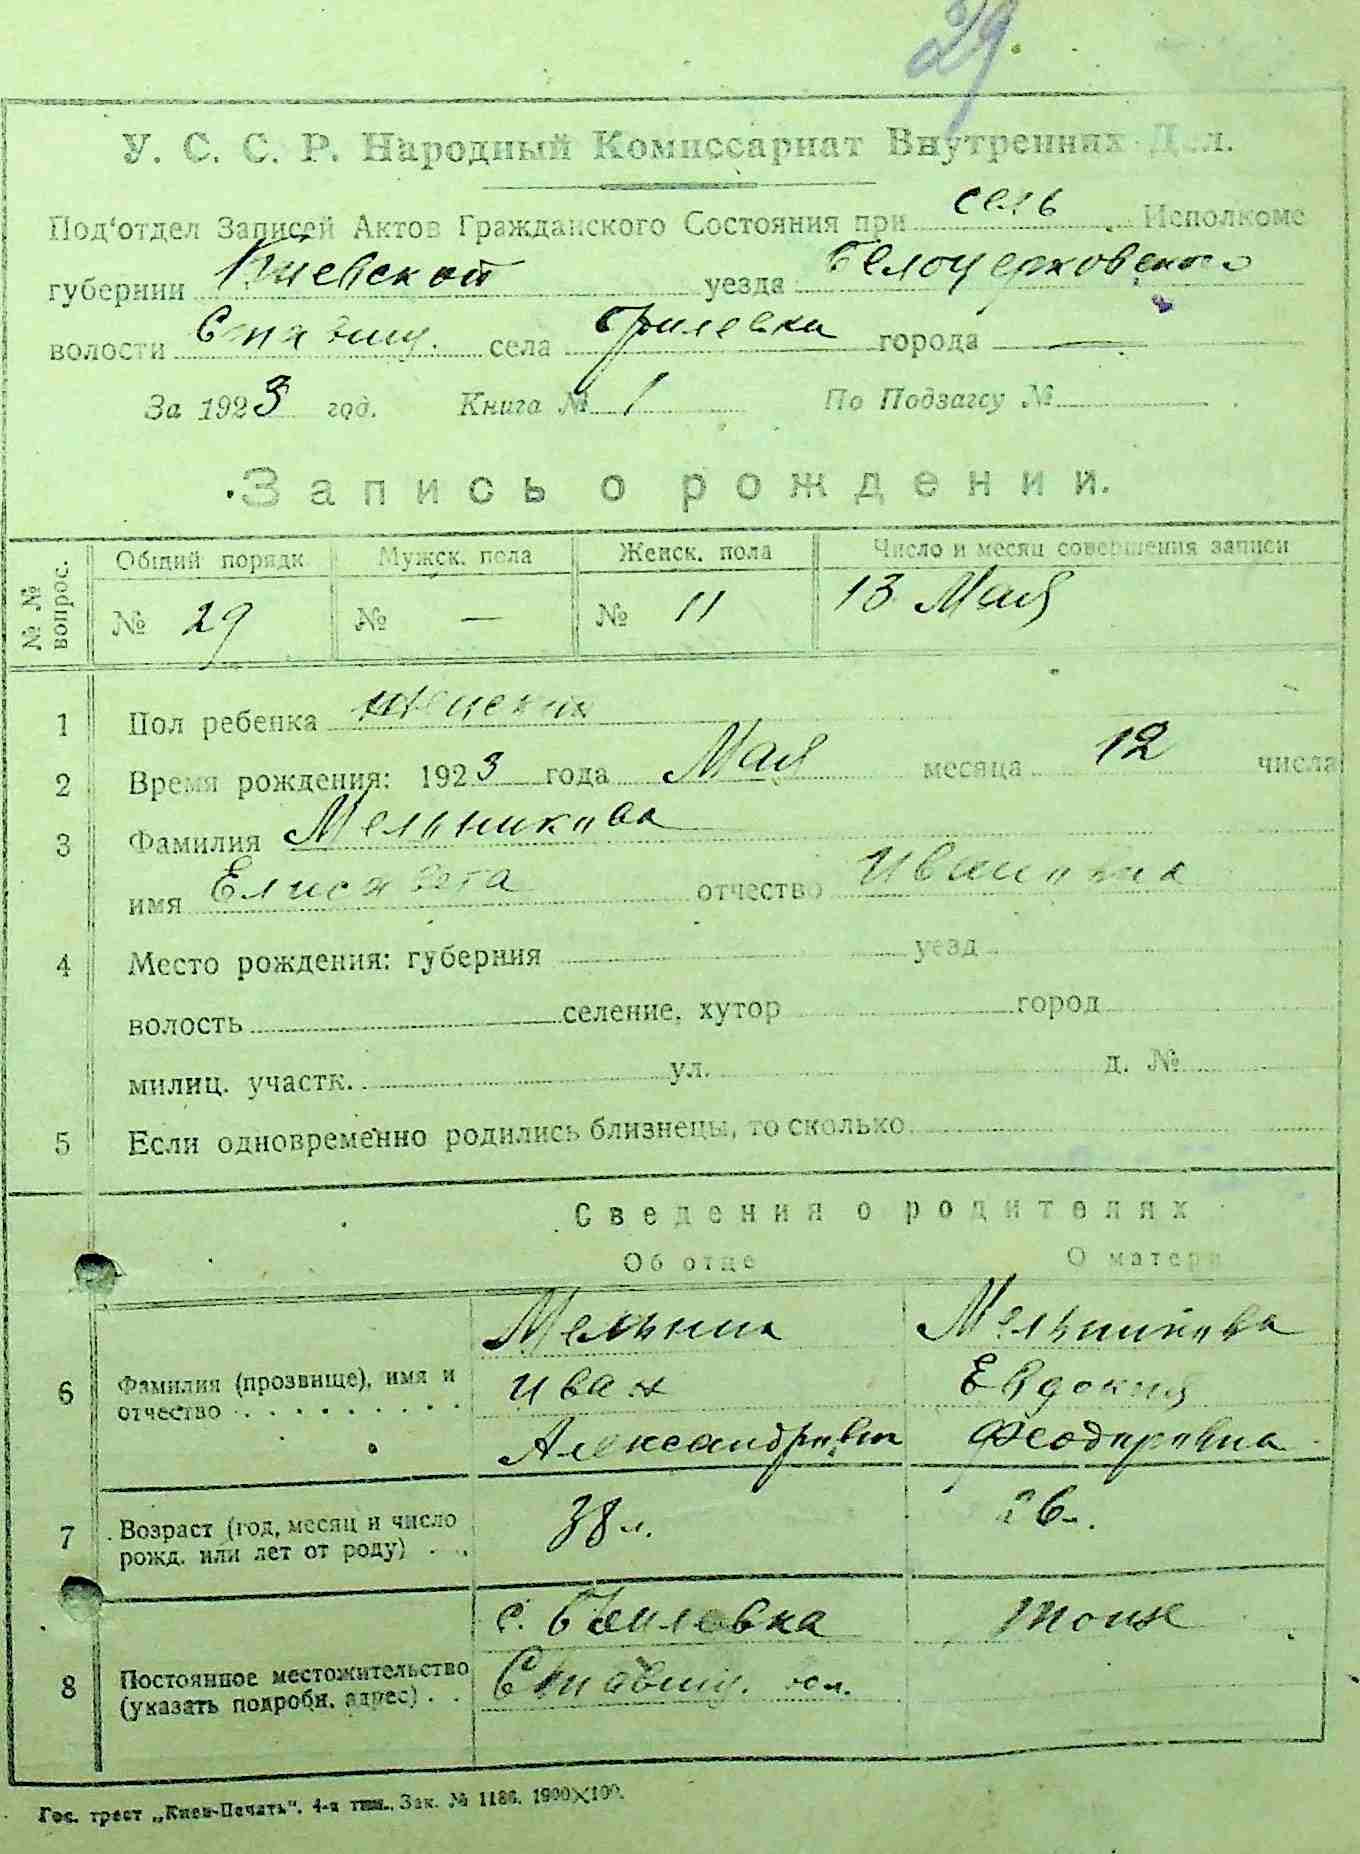 29
У. С. С. Р. Народный Комиссариат Внутренних Дел.
Под'отдел Записей Актов Гражданского Состояния при сель Исполкоме
губернии Киевской уезда Белоцерковского
волости Ставищ. села города —
За 1923 год. Книга № 1 По Подзагсу №
Запись о рождении.
№ № вопрос. Общий порядк Мужск. пола Женск. пола Число и месяц совершения записи
№ 29 № — № 11 13 Мая
1 Пол ребенка женский
2 Время рождения: 1923 года Мая месяца 12 числа
3 Фамилия Мельникова
имя Елисавета отчество Ивановна
4 Место рождения: губерния уезд
волость селение, хутор город
милиц. участк. ул. д. №
5 Если одновременно родились близнецы, то сколько
Сведения о родителях
Об отце О матери
Мельник Мельникова
6 Фамилия (прозвище), имя и Иван Евдокия
отчество Александрович Феодоровна
7 Возраст (год, месяц и число 38 л. 26 л.
рожд. или лет от роду)
с. тоже
8 Постоянное местожительство Ставищ. вол.
(указать подробн. адрес)
Гос. трест „Киев-Печать“. 4-я тип., Зак. № 1186. 1900×100.